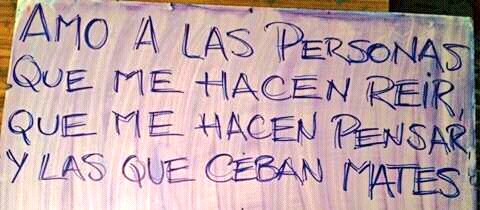 AMO A LAS PERSONAS
QUE ME HACEN REÍR,
QUE ME HACEN PENSAR,
Y LAS QUE CEBAN MATES